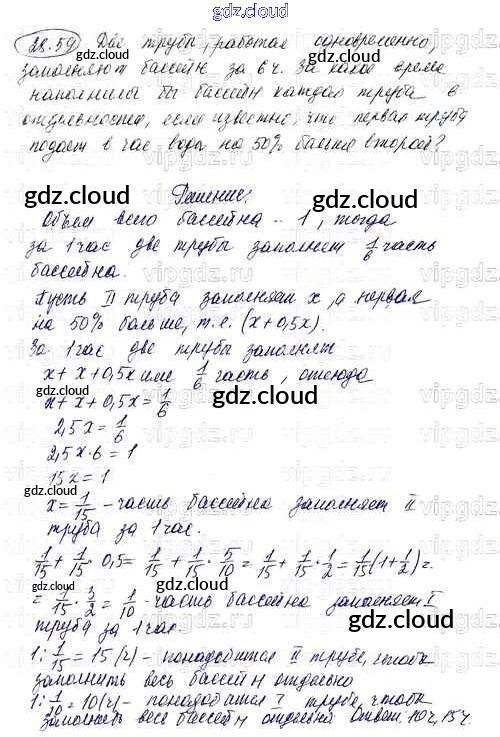 gdz.cloud
28.59 Две трубы, работая одновременно,
gdz.cloud
заполняют бассейн за 6 ч. За какое время
наполнила бы бассейн каждая труба в
отдельности, если известно, что первая труба
подает в час воды на 50% больше второй?
gdz.cloud gdz.cloud
Решение:
Объем всего бассейна - 1, тогда
за 1 час две трубы заполнят 1/6 часть
бассейна.
Пусть II труба заполняет x, а первая
на 50% больше, т.е. (x+0,5x).
За 1 час две трубы заполнят
x+x+0,5x или 1/6 часть, отсюда
gdz.cloud gdz.cloud
x+x+0,5x=1/6
2,5x=1/6
2,5x·6=1
15x=1
gdz.cloud
x=1/15 - часть бассейна заполняет II
gdz.cloud
труба за 1 час.
1/15+1/15·0,5=1/15+1/15·5/10=1/15+1/15·1/2=1/15(1+1/2)=
gdz.cloud
=1/15·3/2=1/10 - часть бассейна заполняет I
gdz.cloud
труба за 1 час.
1:1/15=15(ч) - понадобится II трубе, чтобы
gdz.cloud
заполнить весь бассейн отдельно
1:1/10=10(ч) - понадобится I трубе, чтобы
gdz.cloud
заполнить весь бассейн отдельно. Ответ: 10ч, 15ч.